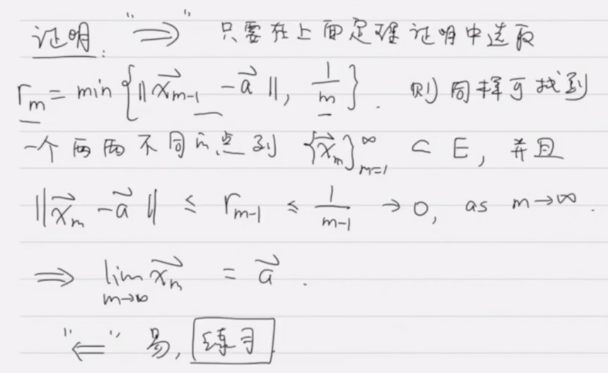 证明: "⇒" 只需在上面定理证明中选取
r_m = min { ‖\vec{x}_{m-1} - \vec{a}‖, \frac{1}{m} }. 则同样可找到
一个两两不同的点列 {\vec{x}_m}_{m=1}^{∞} ⊂ E, 并且
‖\vec{x}_m - \vec{a}‖ ≤ r_{m-1} ≤ \frac{1}{m-1} → 0, as m→∞.
⇒ \lim_{m→∞} \vec{x}_m = \vec{a}.
"⇐" 易, 练习